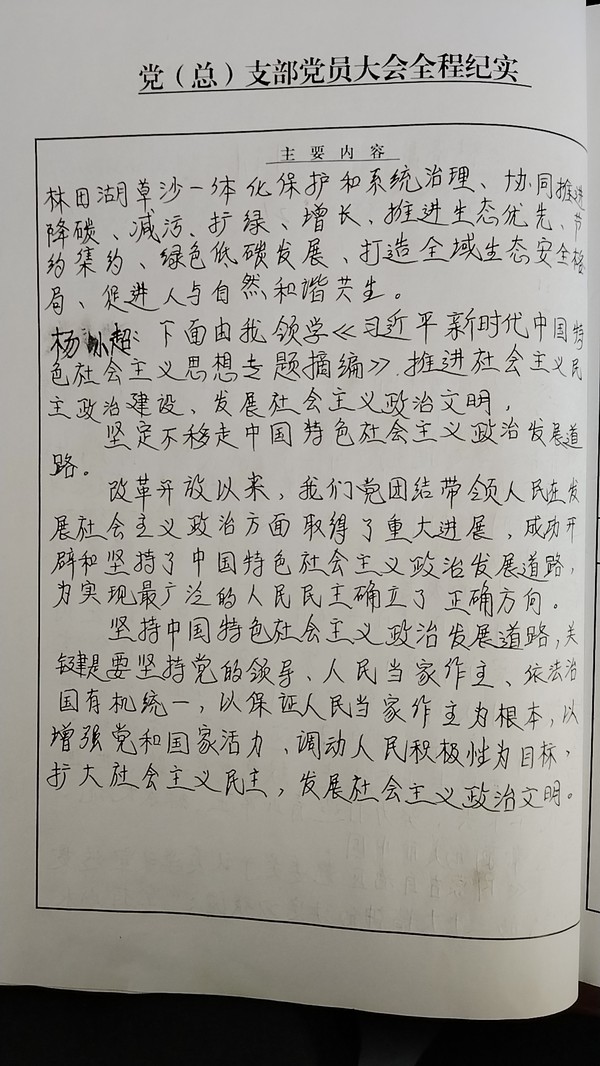 党（总）支部党员大会全程纪实
主要内容
林田湖草沙一体化保护和系统治理、协同推进
降碳、减污、扩绿、增长、推进生态优先、节
约集约、绿色低碳发展、打造全域生态安全格
局、促进人与自然和谐共生。
杨小超：下面由我领学《习近平新时代中国特
色社会主义思想专题摘编》.推进社会主义民
主政治建设、发展社会主义政治文明，
坚定不移走中国特色社会主义政治发展道
路。
改革开放以来，我们党团结带领人民在发
展社会主义政治方面取得了重大进展，成功开
辟和坚持了中国特色社会主义政治发展道路，
为实现最广泛的人民民主确立了正确方向。
坚持中国特色社会主义政治发展道路，关
键是要坚持党的领导、人民当家作主、依法治
国有机统一，以保证人民当家作主为根本，以
增强党和国家活力、调动人民积极性为目标，
扩大社会主义民主，发展社会主义政治文明。